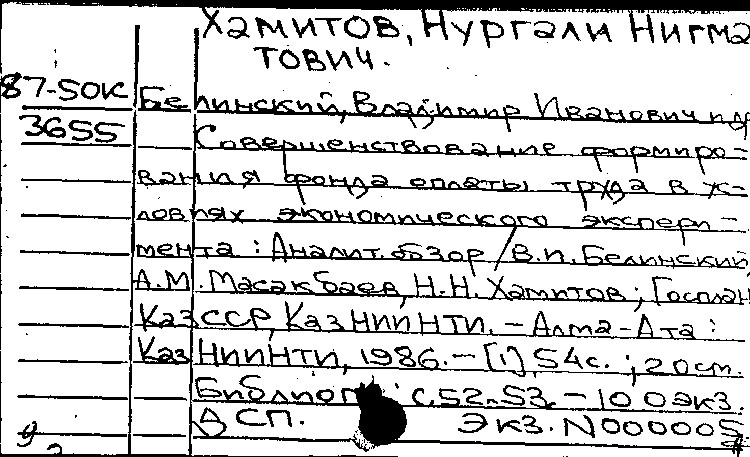 Хамитов, Нургали Нигма
тович.
87-50к Белинский, Владимир Иванович и др
3655 Совершенствование формиро-
вания фонда оплаты труда в ус-
ловиях экономического экспери-
мента: Аналит. обзор / В.И. Белинский
А.М. Масакбаев, Н.Н. Хамитов; Госплан
КазССР, КазНИИНТИ. - Алма-Ата:
КазНИИНТИ, 1986. - [1], 54 с.; 20 см.
Библиогр: с. 52-53. - 100 экз.
ДСП. Экз. N000005